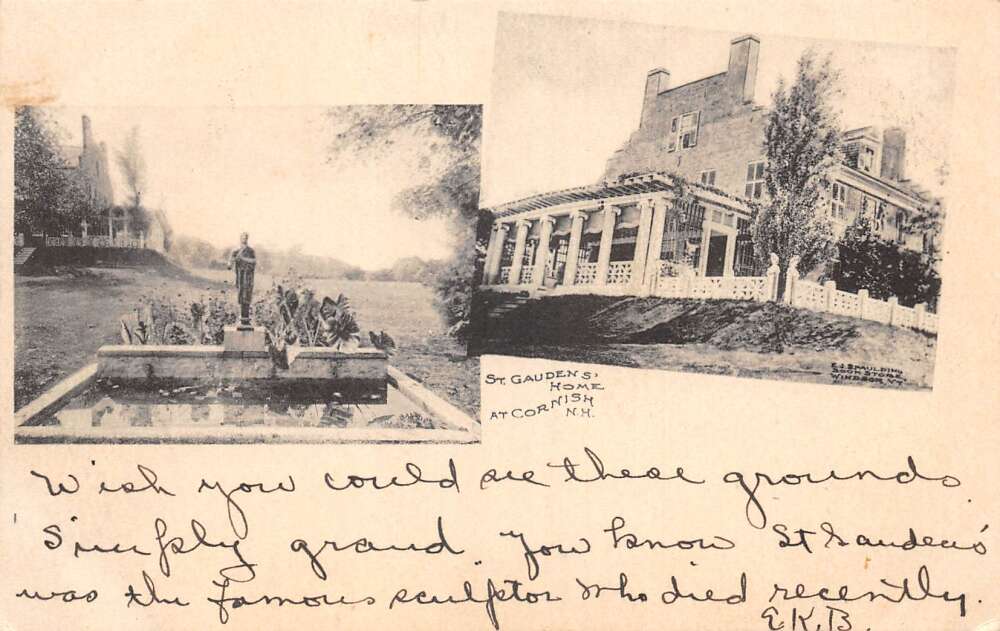 ST. GAUDENS'
HOME
AT CORNISH
N.H.
E.I. SPAULDING
BOOK STORE
WINDSOR VT.
Wish you could see these grounds.
Simply grand. You know St Gaudens'
was the famous sculptor who died recently.
E.K.B.